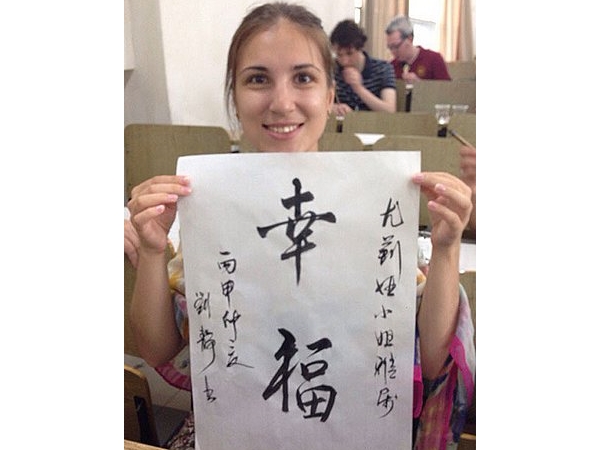 尤莉娅小姐雅属
幸福
丙申仲夏
劉静书